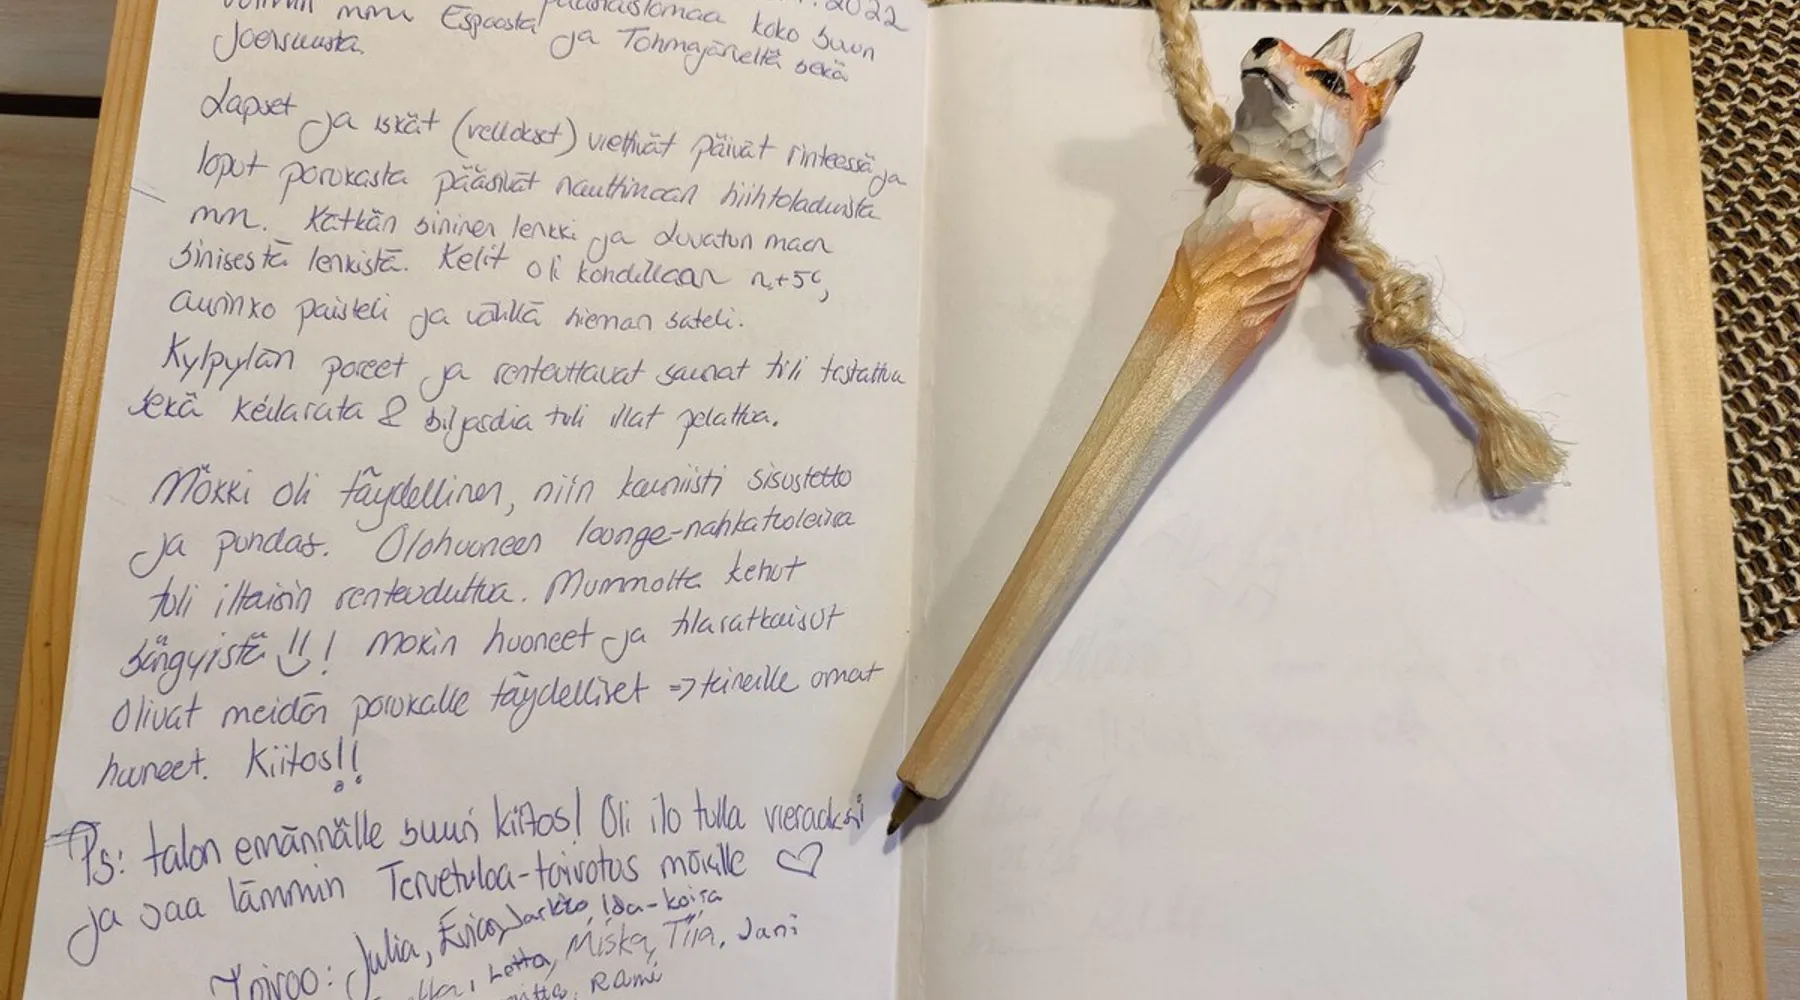 pääsiäislomaa koko suvun 2022
mm. Espoosta ja Tohmajärveltä sekä
Joensuusta.
Lapset ja iskät (vellokset) viettivät päivät rinteessä ja
loput porukasta pääsivät nauttimaan hiihtoladuista
mm. Kätkän sininen lenkki ja Luvatun maan
sinisestä lenkistä. Kelit oli kohdillaan n.+5c,
aurinko paisteli ja välillä hieman sateli.
Kylpylän poreet ja rentouttavat saunat tuli testattua
sekä keilarata & biljardia tuli illat pelattua.
Mökki oli täydellinen, niin kauniisti sisustettu
ja puhdas. Olohuoneen lounge-nahkatuoleissa
tuli iltaisin rentouduttua. Mummolta kehut
sängyistä !! Mökin huoneet ja tilaratkaisut
Olivat meidän porukalle täydelliset => teineille omat
huoneet. Kiitos!!
Ps: talon emännälle suuri kiitos! Oli ilo tulla vieraaksi
ja saa lämmin Tervetuloa-toivotus mökille ♡
Toivoo: Julia, Eerico, Jarkko, Ida-koira
Lotta, Miska, Tiia, Jani
Rami